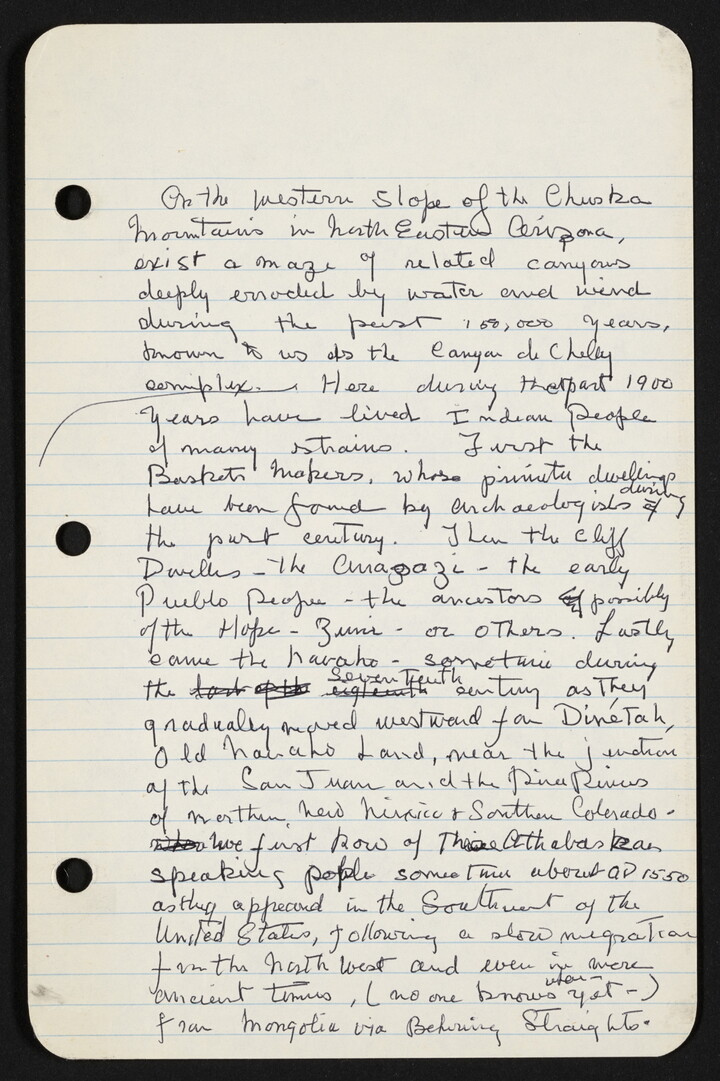 On the western slope of the Chuska
Mountains in North Eastern Arizona,
exist a maze of related canyons
deeply erroded by water and wind
during the past 150,000 years,
known to us as the Canyon de Chelly
complex. Here during the past 1900
years have lived Indean People
of many strains. First the
Baskets Makers, whose dwellings
have been found by archaeologists during
the past century. Then the Cliff
Dwellers - The Anasazi - the early
Pueblo People - the ancestors possibly
of the Hope - Zuni - or others. Lastly
came the Navaho - sometime during
the seventeenth century as they
gradually moved westward from Dinétah,
Old Navaho Land, near the junction
of the San Juan and the Pine Rivers
of northern New Mexico & Southern Colorado -
we first know of These Athabaskan
speaking people sometime about AD 1550
as they appeard in the Southwest of the
United States, following a slow migration
from the North West and even in more
ancient times, (no one knows when yet -)
from Mongolia via Behring Straights.